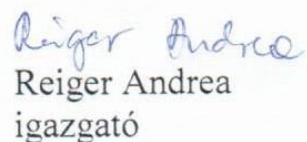 Reiger Andrea
Reiger Andrea
igazgató